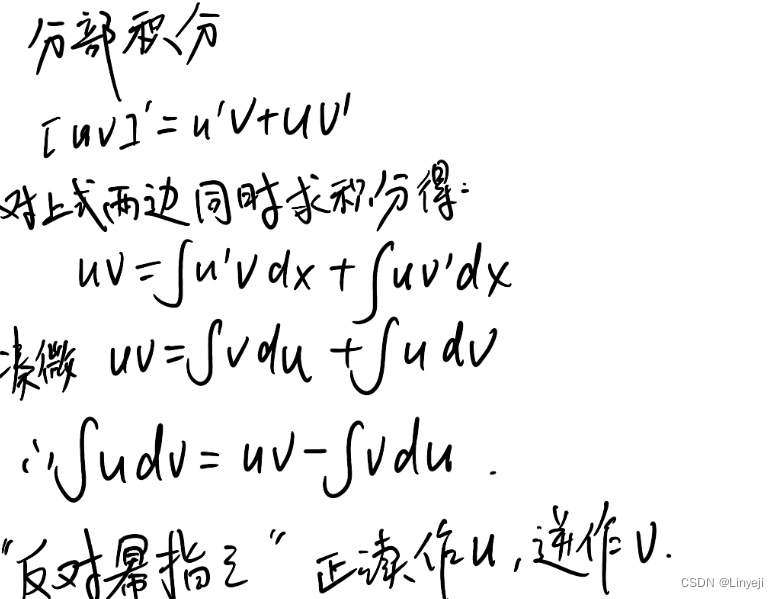 分部积分
[uv]'=u'v+uv'
对上式两边同时求积分得:
uv=∫u'vdx+∫uv'dx
凑微 uv=∫vdu+∫udv
∴∫udv=uv-∫vdu.
"反对幂指三"正读作u,逆作v.
CSDN @Linyeji